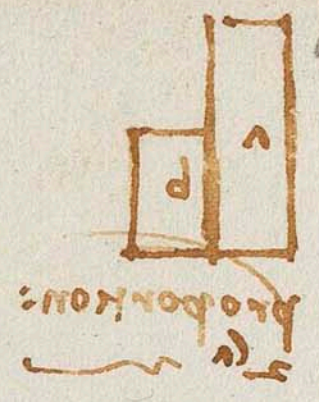 a
b
proportion: